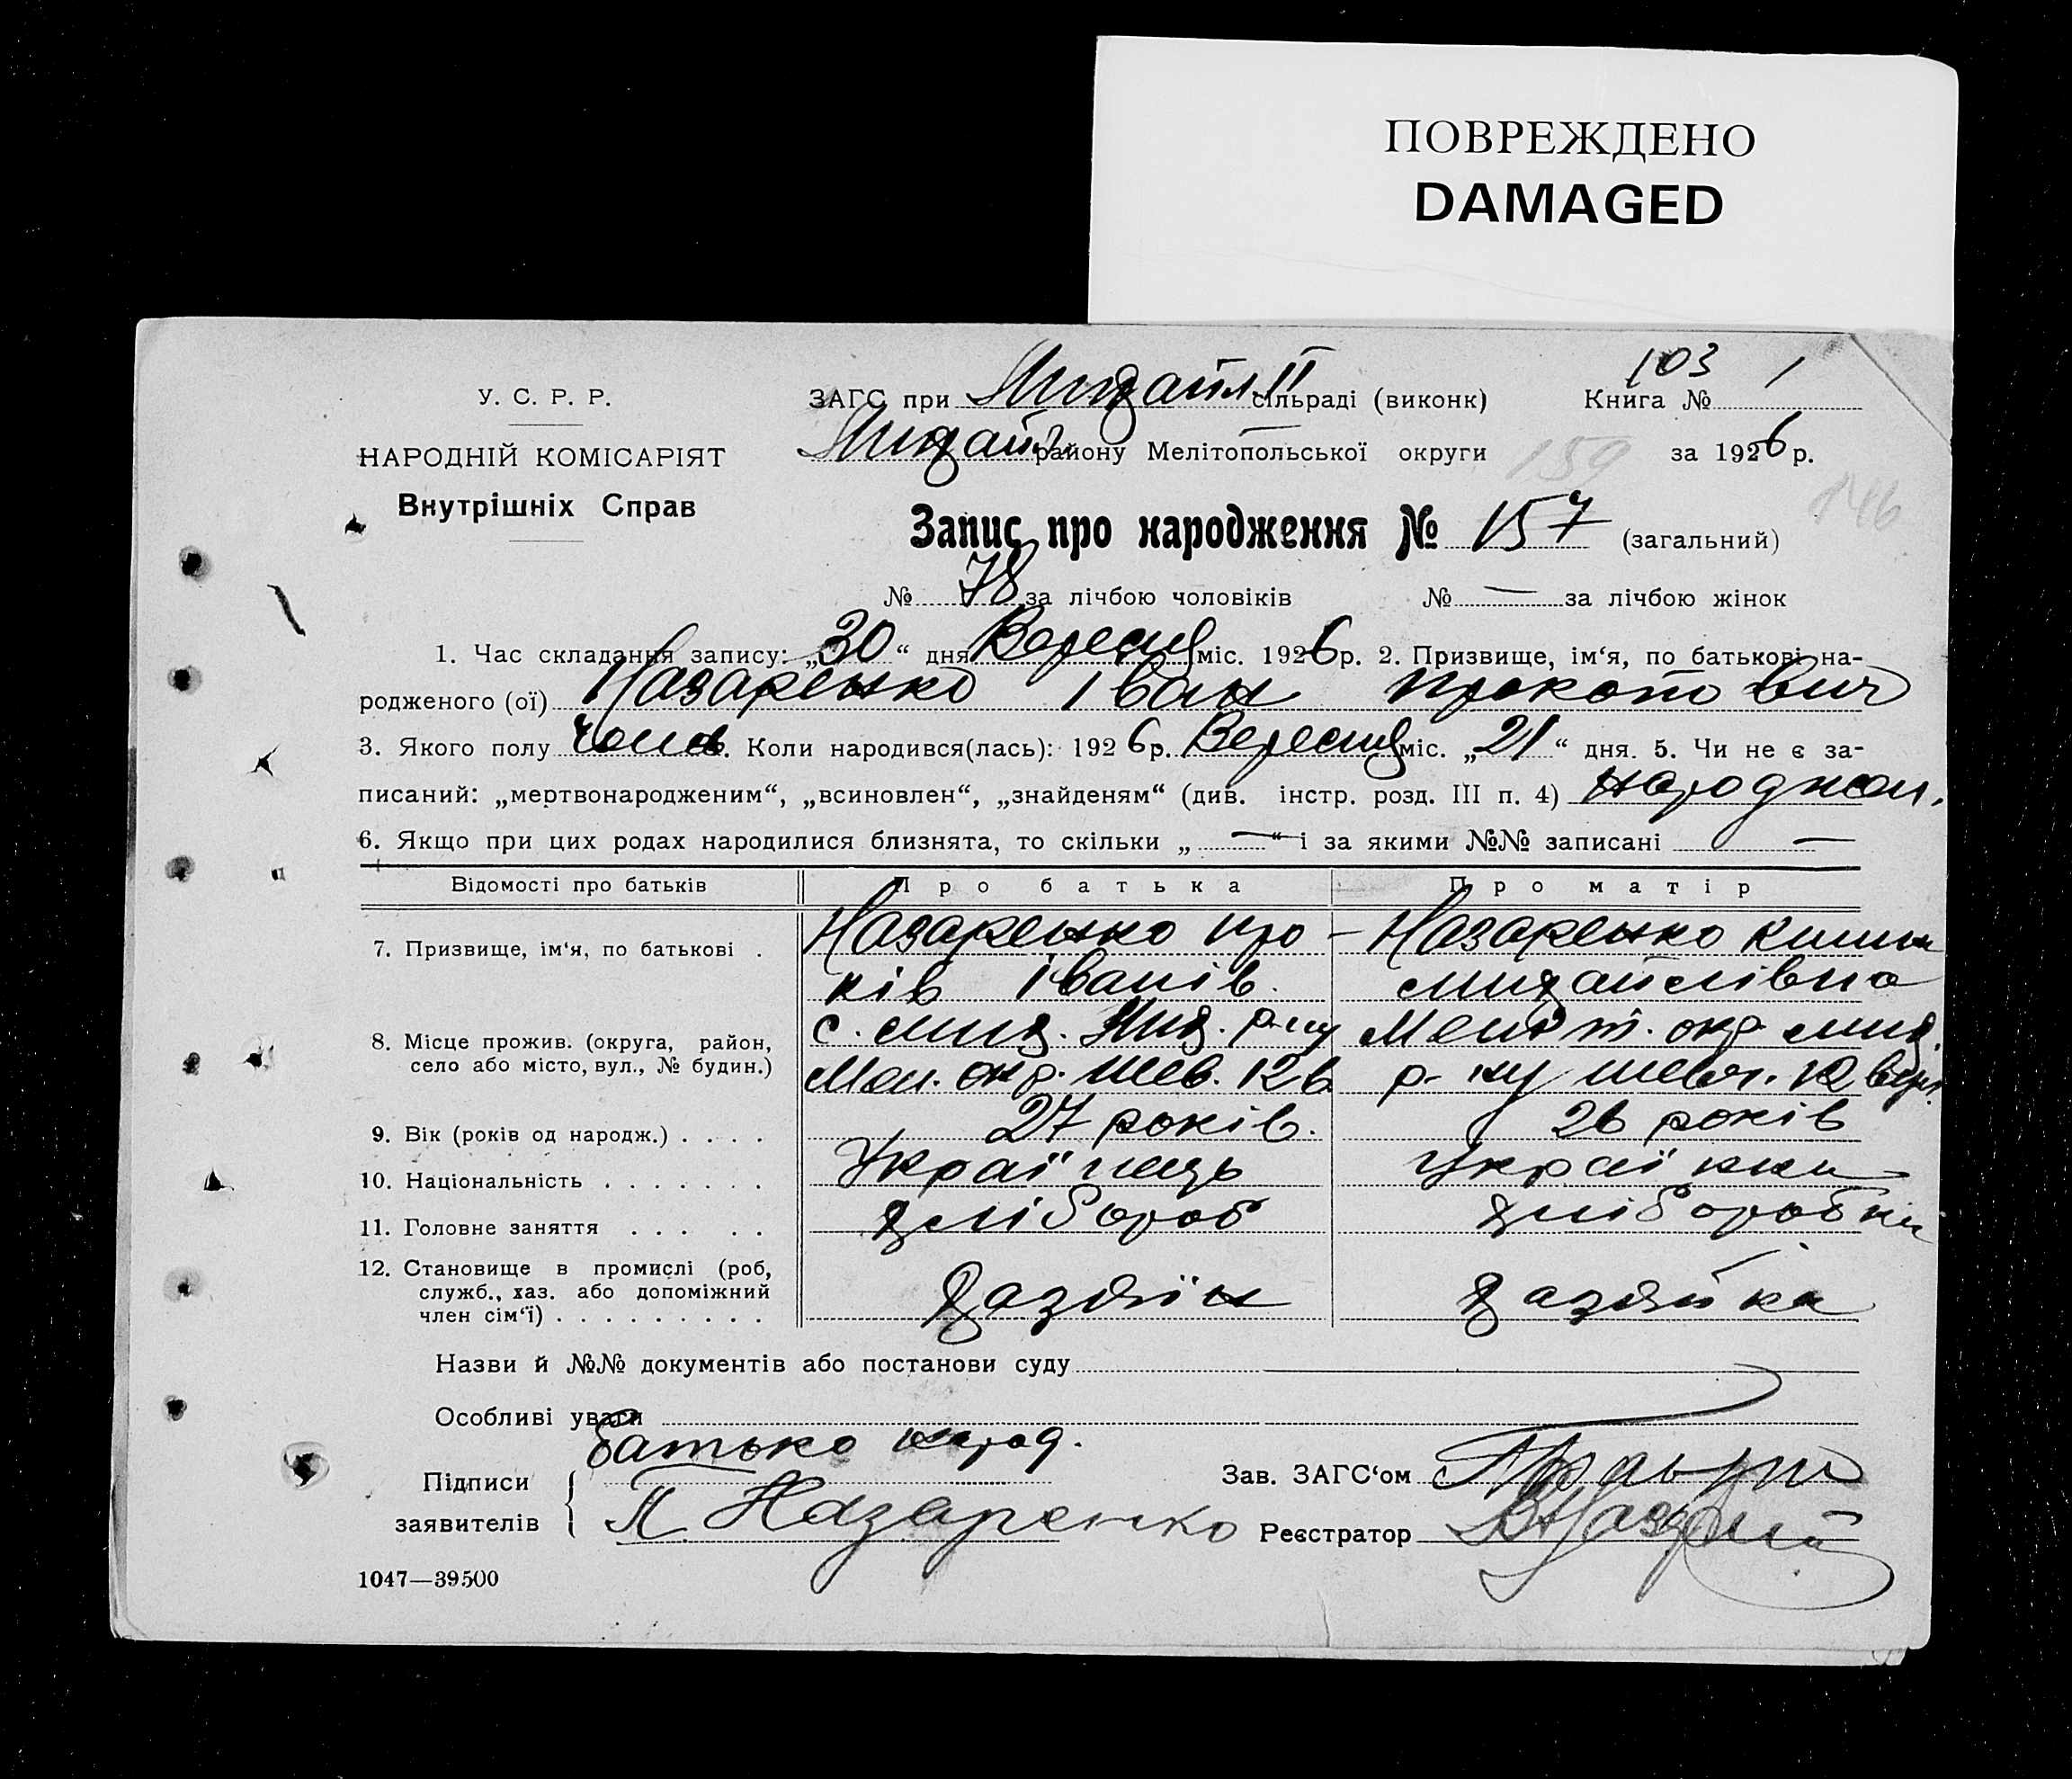 ПОВРЕЖДЕНО
DAMAGED
У. С. Р. Р.
НАРОДНІЙ КОМІСАРІЯТ
Внутрішніх Справ
ЗАГС при Михайл. II сільраді (виконк)
Книга № 103 1
Михайл району Мелітопольської округи 159 за 1926 р.
146
Запис про народження № 157 (загальний)
№ 78 за лічбою чоловіків № — за лічбою жінок
1. Час складання запису: „30“ дня Вересня міс. 1926 р. 2. Призвище, ім‘я, по батькові на-
родженого (ої) Назаренко Іван Прокопович
3. Якого полу чолов. Коли народився(лась): 1926 р. Вересня міс. „21“ дня. 5. Чи не є за-
писаний: „мертвонародженим“, „всиновлен“, „знайденям“ (див. інстр. розд. III п. 4) народжен.
6. Якщо при цих родах народилися близнята, то скільки „—“ і за якими №№ записані —
Відомості про батьків Про батька Про матір
7. Призвище, ім‘я, по батькові . Назаренко Про- Назаренко
ків Іванів. Михайлівна
8. Місце прожив. (округа, район, с. Мих. Мих. р-ну Меліт. окр. Мих.
село або місто, вул., № будин.) Мел. окр. Шев. 12 в. р-ну Шевч. 12
9. Вік (років од народж.) . . . . 27 років. 26 років
10. Національність . . . . . . . Українець Українка
11. Головне заняття . . . . . хлібороб хліборобка
12. Становище в промислі (роб, служб., хаз. або допоміжний член сім‘ї) . . . . . . . . . хазяїн хазяйка
Назви й №№ документів або постанови суду
Особливі уваги
батько народ.
Підписи заявителів П. Назаренко
Зав. ЗАГС‘ом
Реєстратор
1047—39500